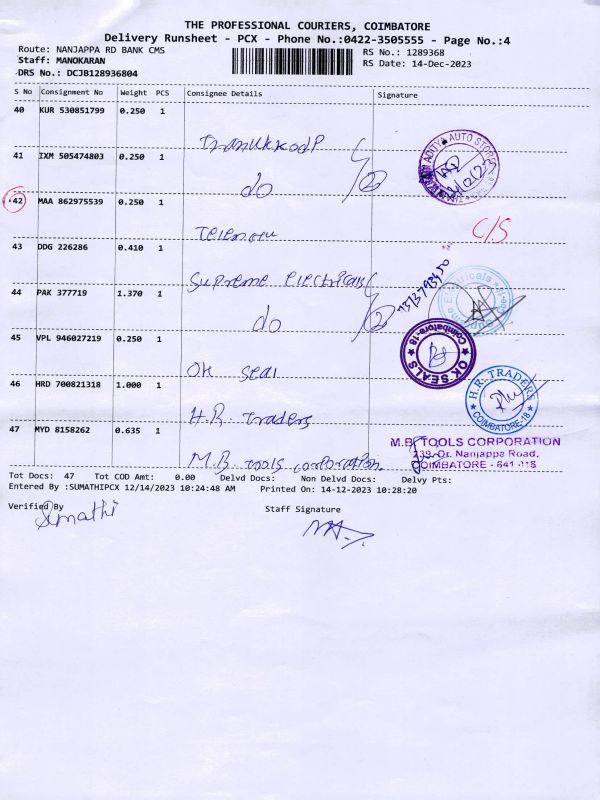 THE PROFESSIONAL COURIERS, COIMBATORE
Delivery Runsheet - PCX - Phone No.:0422-3505555 - Page No.:4
Route: NANJAPPA RD BANK CMS
RS No.: 1289368
Staff: MANOKARAN
RS Date: 14-Dec-2023
DRS No.: DCJB128936804
S No Consignment No Weight PCS Consignee Details Signature
40 KUR 530851799 0.250 1
41 IXM 505474803 0.250 1 do
ADITYA AUTO STORES
42 MAA 862975539 0.250 1
C/S
43 DDG 226286 0.410 1 Supreme Electricals
44 PAK 377719 1.370 1 do
45 VPL 946027219 0.250 1 OK seal
OK SEALS Coimbatore-18
46 HRD 700821318 1.000 1 H.R. Traders
H.R. TRADERS COIMBATORE-18
47 MYD 8158262 0.635 1 M.B tools corporation.
M.B. TOOLS CORPORATION
239, Dr. Nanjappa Road,
COIMBATORE - 641 018
Tot Docs: 47 Tot COD Amt: 0.00 Delvd Docs: Non Delvd Docs: Delvy Pts:
Entered By :SUMATHIPCX 12/14/2023 10:24:48 AM Printed On: 14-12-2023 10:28:20
Verified By Staff Signature
Sumathi